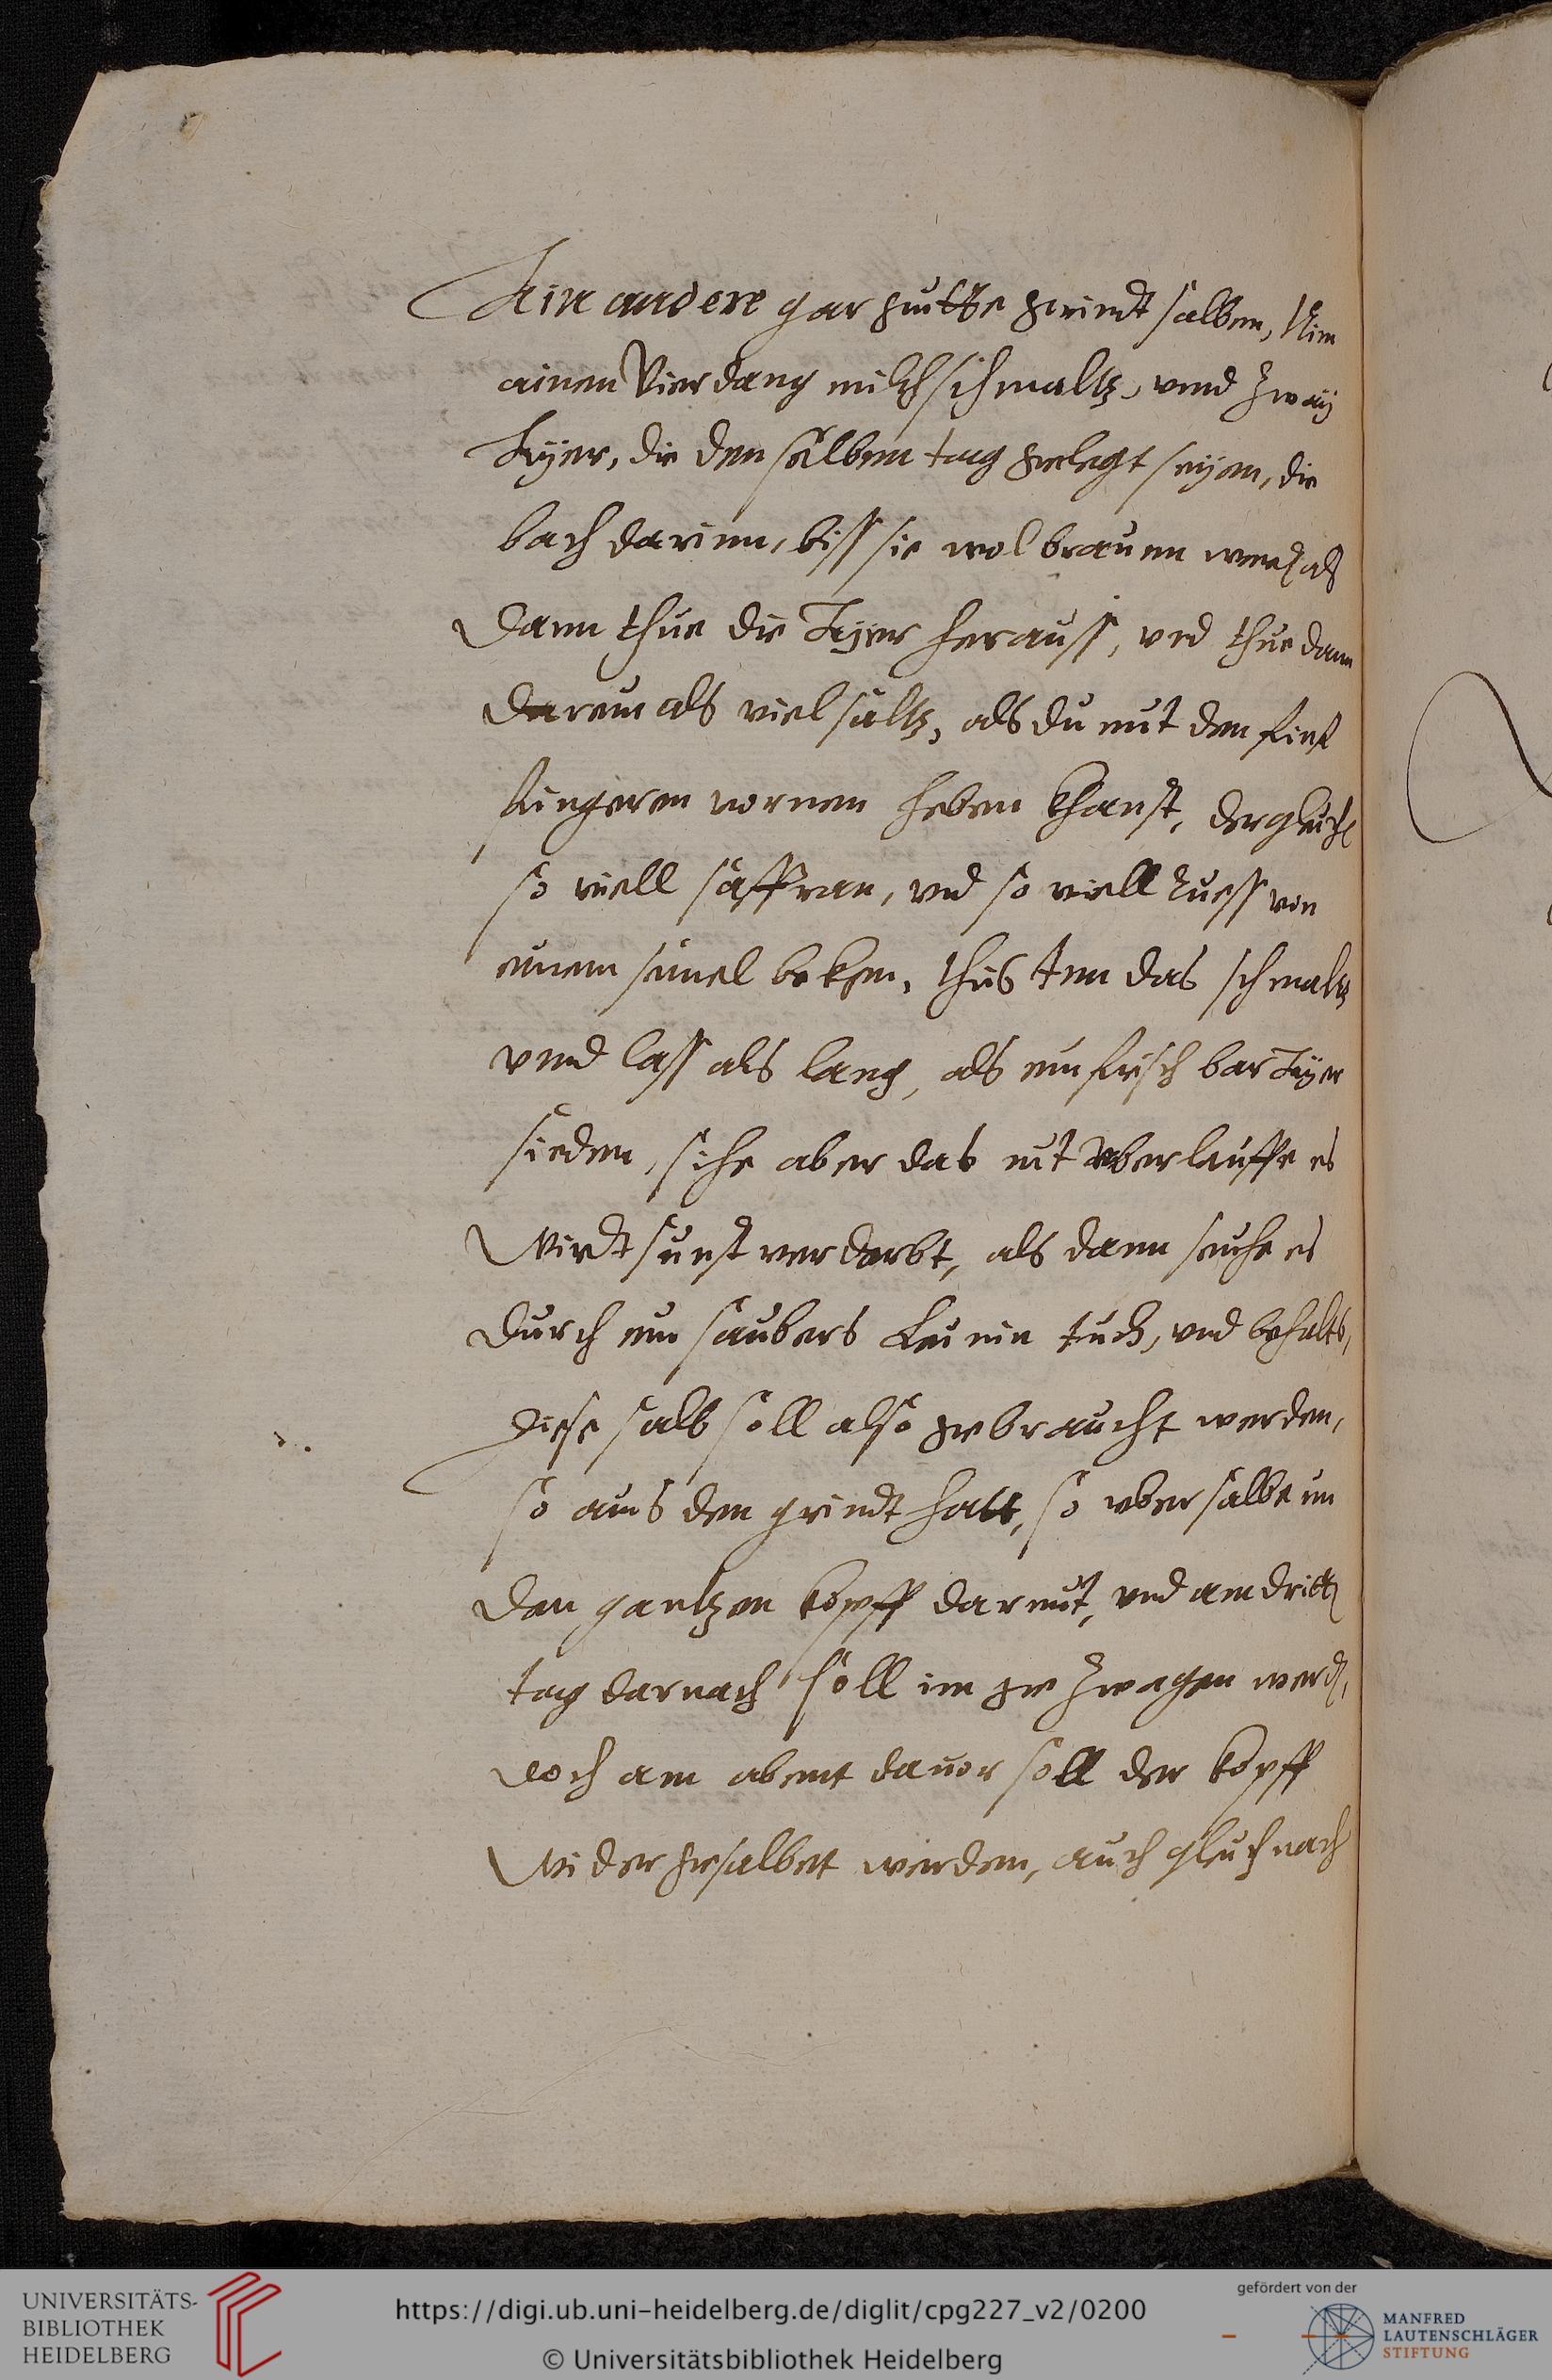 Ain andere gar guttte grindt salben, Nim
ainen Vierdang milchschmaltz, vnnd zway
Ayer, die den selben tag gelegt seyen, die
bach darinn, biss sie wol braunn werd, als
Dann thue die Ayer herauss, vnd thue dann
darein als viel saltz, als du mit den finf
fingeren vornen heben khanst, dergleich
so viell saffran, vnd so viell Ruess von
einem simel beken, thus Inn das schmaltz
vnnd lass als lang, als ein frisch bar Ayer
sieden, sihe aber das nit vberlauffe es
Wirdt sunst verderbt, als dann seuhe es
durch ein saubers Leinin tuch, vnd behalts,
Diese salb soll also gebraucht werden,
so ains den grindt hatt, so vbersalbe im
den gantzen kopff darmit, vnd am dritt
tag darnach soll im gezwagen werd,
doch am abent dauor soll der kopff
Wider gesalbet werden, auch gleich nach
UNIVERSITÄTS-
BIBLIOTHEK
HEIDELBERG
https://digi.ub.uni-heidelberg.de/diglit/cpg227_v2/0200
© Universitätsbibliothek Heidelberg
gefördert von der
MANFRED
LAUTENSCHLÄGER
STIFTUNG